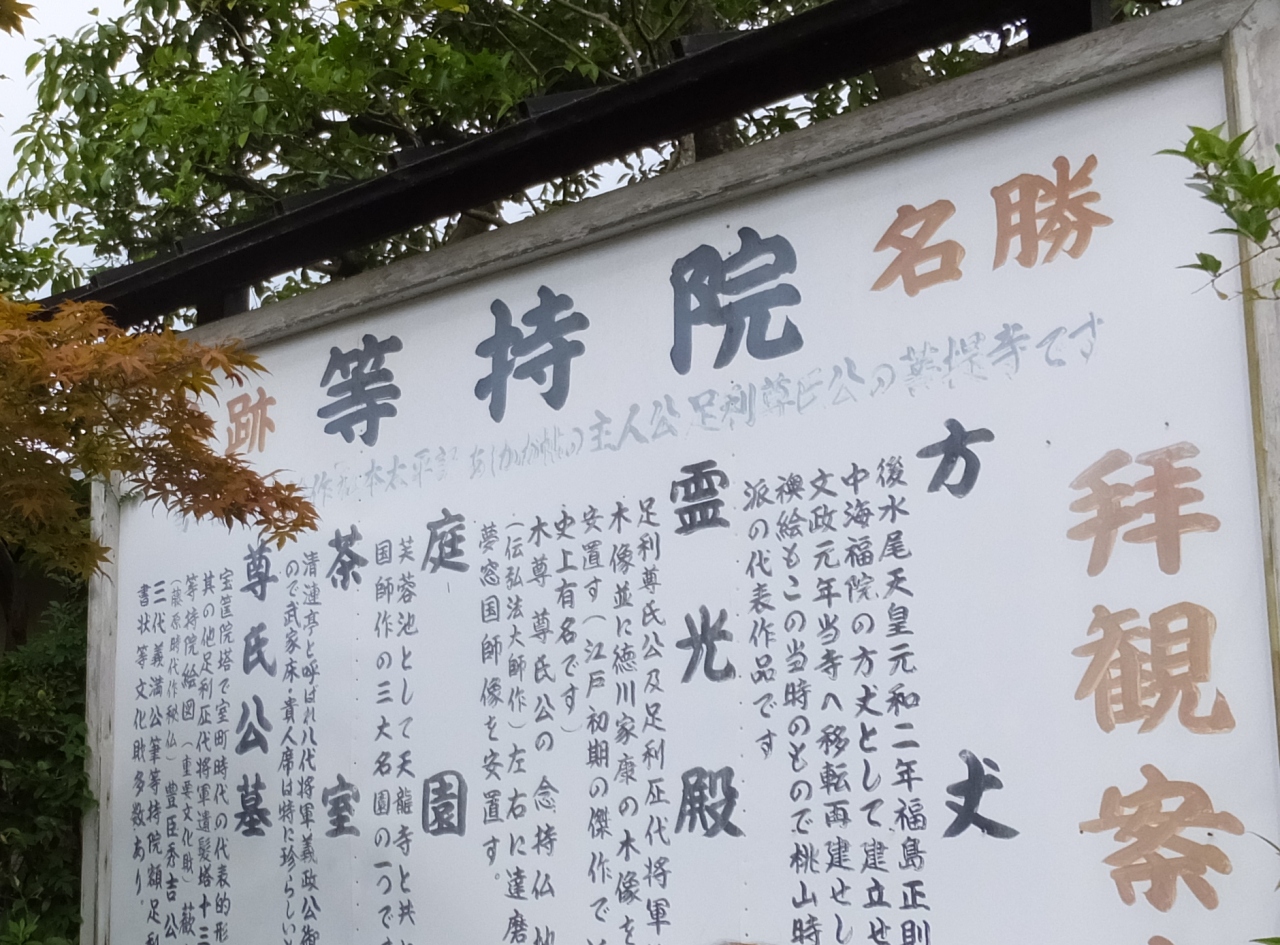 名勝
等持院
跡
作 本太平記 あしかが帖の主人公足利尊氏公の菩提寺です
拝観案
方丈
後水尾天皇元和二年福島正則
中海福院の方丈として建立せ
文政元年当寺へ移転再建せし
襖絵もこの当時のもので桃山時
派の代表作品です
霊光殿
足利尊氏公及足利歴代将軍
木像並に徳川家康の木像を
安置す(江戸初期の傑作で
史上有名です)
木尊 尊氏公の 念持仏 地
(伝弘法大師作)左右に達磨
夢窓国師像を安置す。
庭園
芙蓉池として天龍寺と共に
国師作の三大名園の一つで
茶室
清漣亭と呼ばれ八代将軍義政公御
ので武家床・貴人席は特に珍らしい
尊氏公墓
宝筐院塔で室町時代の代表的形
其の他足利歴代将軍遺髪塔十三
等持院絵図(重要文化財)
(藤原時代作秘仏)豊臣秀吉公
三代義満公筆等持院額足利
書状等文化財多数あり。